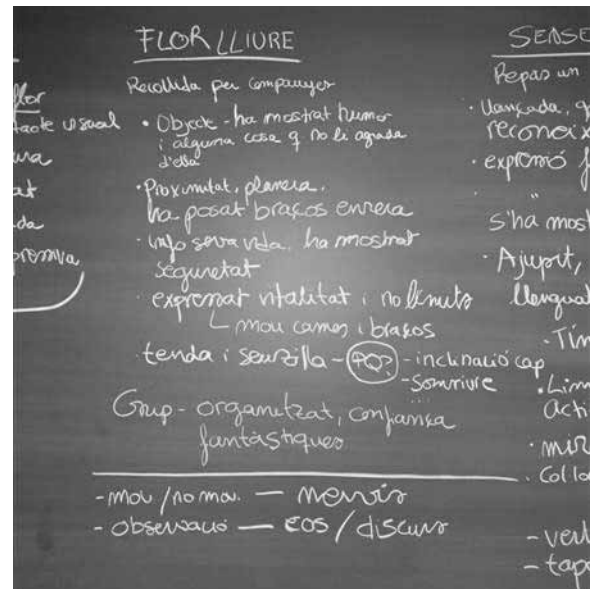 flor
tacte visual
ura
at
da
FLOR LLIURE
Recollida per companyes
• Objecte - ha mostrat humor
i alguna cosa q no li agrada
d'ella
• Proximitat, planera.
ha posat braços enrera
• info seva vida, ha mostrat
seguretat
• expressat vitalitat i no límits
mou cames i braços
• tendra i senzilla - PQ? - inclinació cap
- Somriure
Grup - organitzat, confiança
fantàstiques
- mou / no mou. — nervis
- observació — cos / discurs
SENSE
Repàs un
•
reconeix
• expressió f
"
s'ha most
• Ajupit,
llenguat
- Tím
• Lím
Acti
• mir
• Col·lo
- vert
- tapa